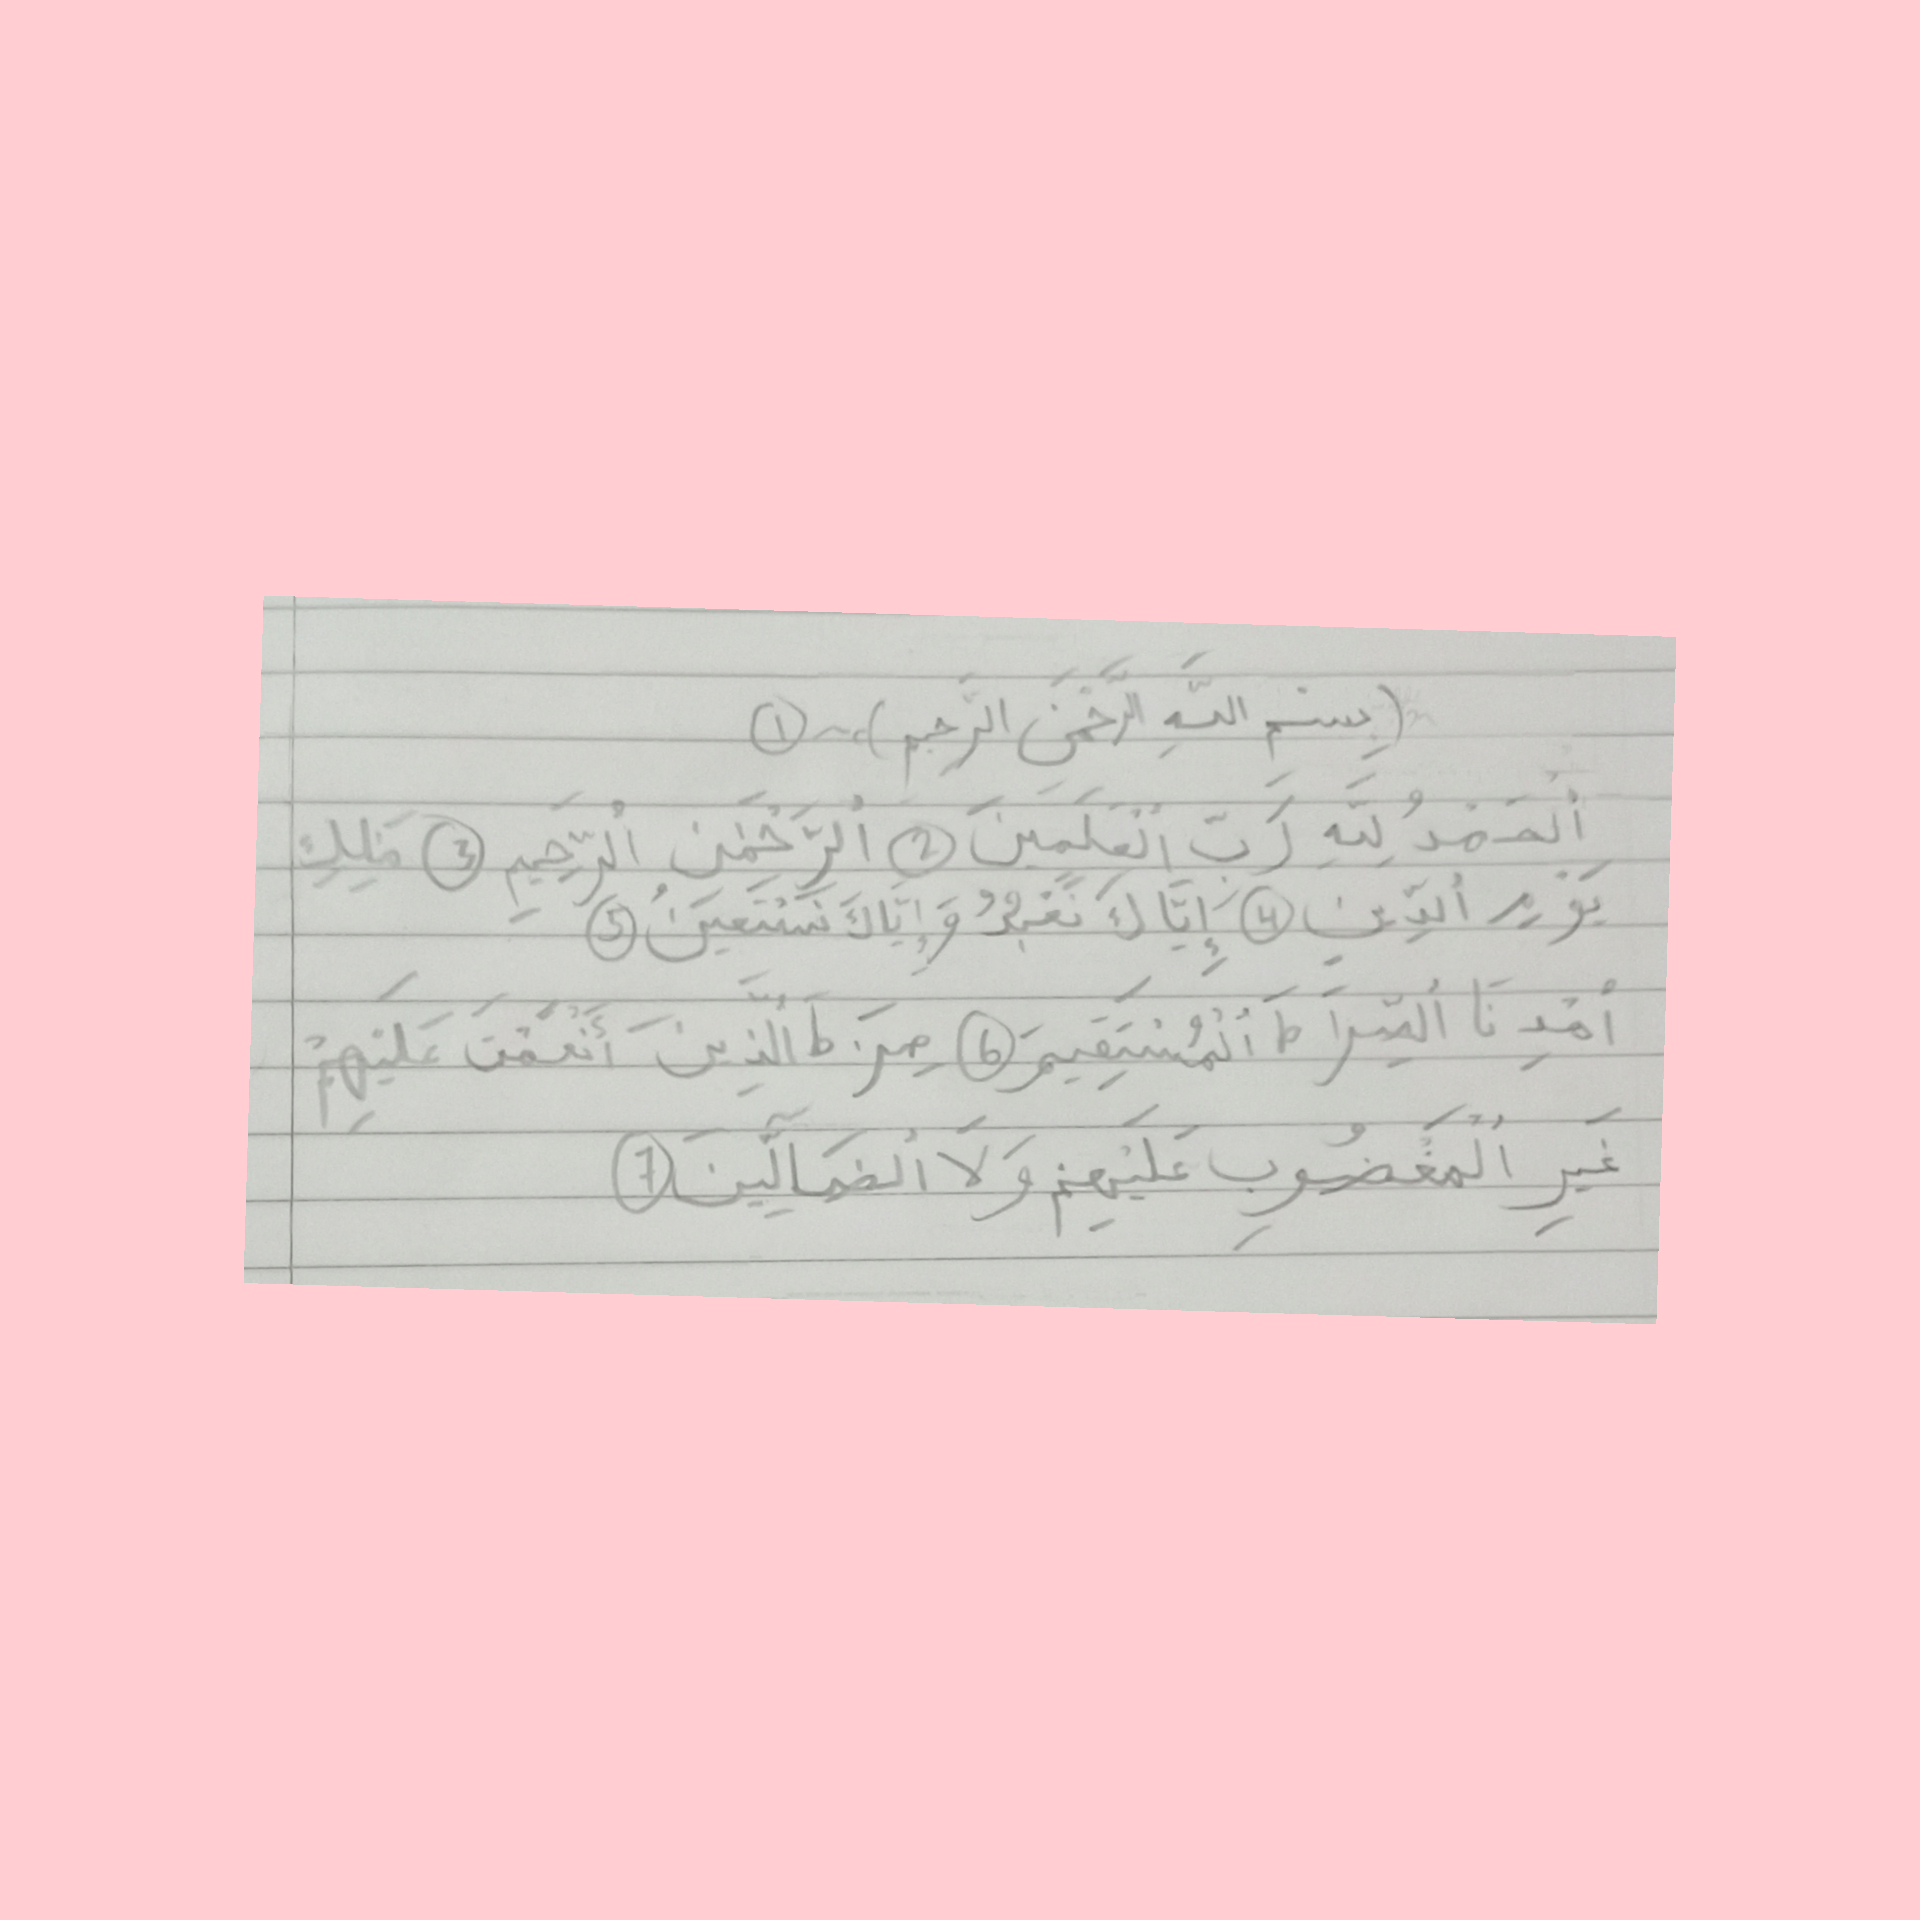 (بِسْمِ اللَّهِ الرَّحْمَٰنِ الرَّحِيمِ) ①
ٱلْحَمْدُ لِلَّهِ رَبِّ ٱلْعَٰلَمِينَ ② ٱلرَّحْمَٰنِ ٱلرَّحِيمِ ③ مَٰلِكِ
يَوْمِ ٱلدِّينِ ④ إِيَّاكَ نَعْبُدُ وَإِيَّاكَ نَسْتَعِينُ ⑤
ٱهْدِنَا ٱلصِّرَاطَ ٱلْمُسْتَقِيمَ ⑥ صِرَٰطَ ٱلَّذِينَ أَنْعَمْتَ عَلَيْهِمْ
غَيْرِ ٱلْمَغْضُوبِ عَلَيْهِمْ وَلَا ٱلضَّآلِّينَ ⑦